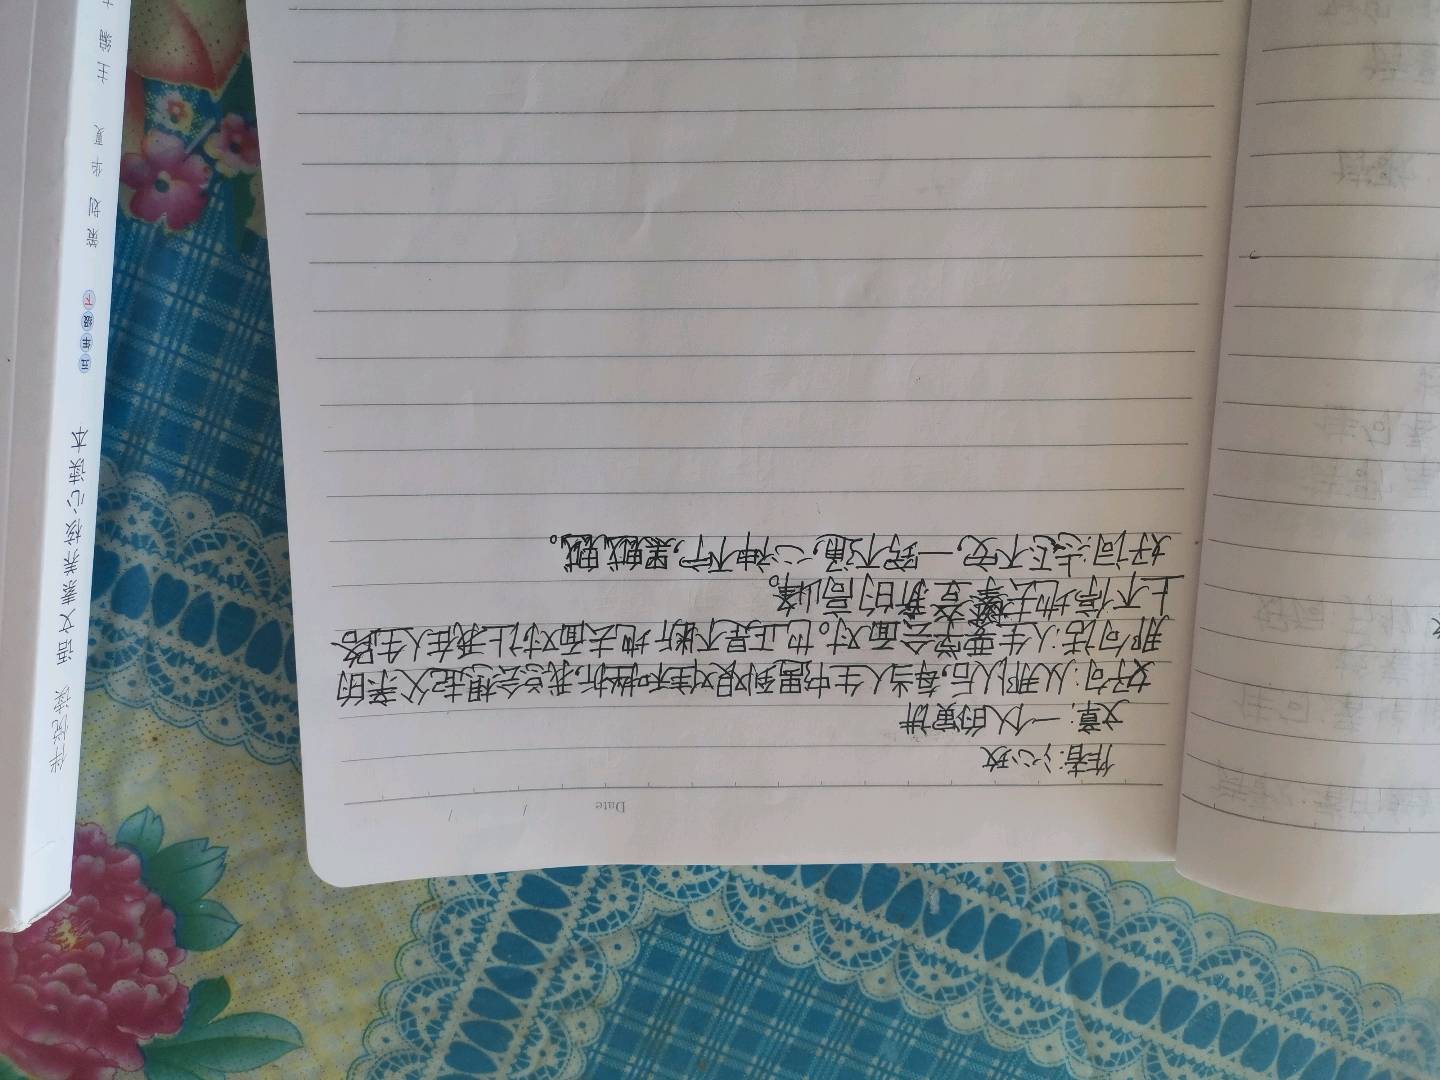 Date / /
作者:沁玫
文章:一个人的演讲
好句:从那以后,每当人生中遇到艰难和挫折,我总会想起父亲的
那句话:人生要学会面对。也正是不断地去面对,让我在人生路
上不停地去攀登新的高峰。
好词:忐忑不安,一窍不通,心神不宁,黑黢黢。
伴悦读 语文素养核心读本 五年级下 策划 华夏 主编